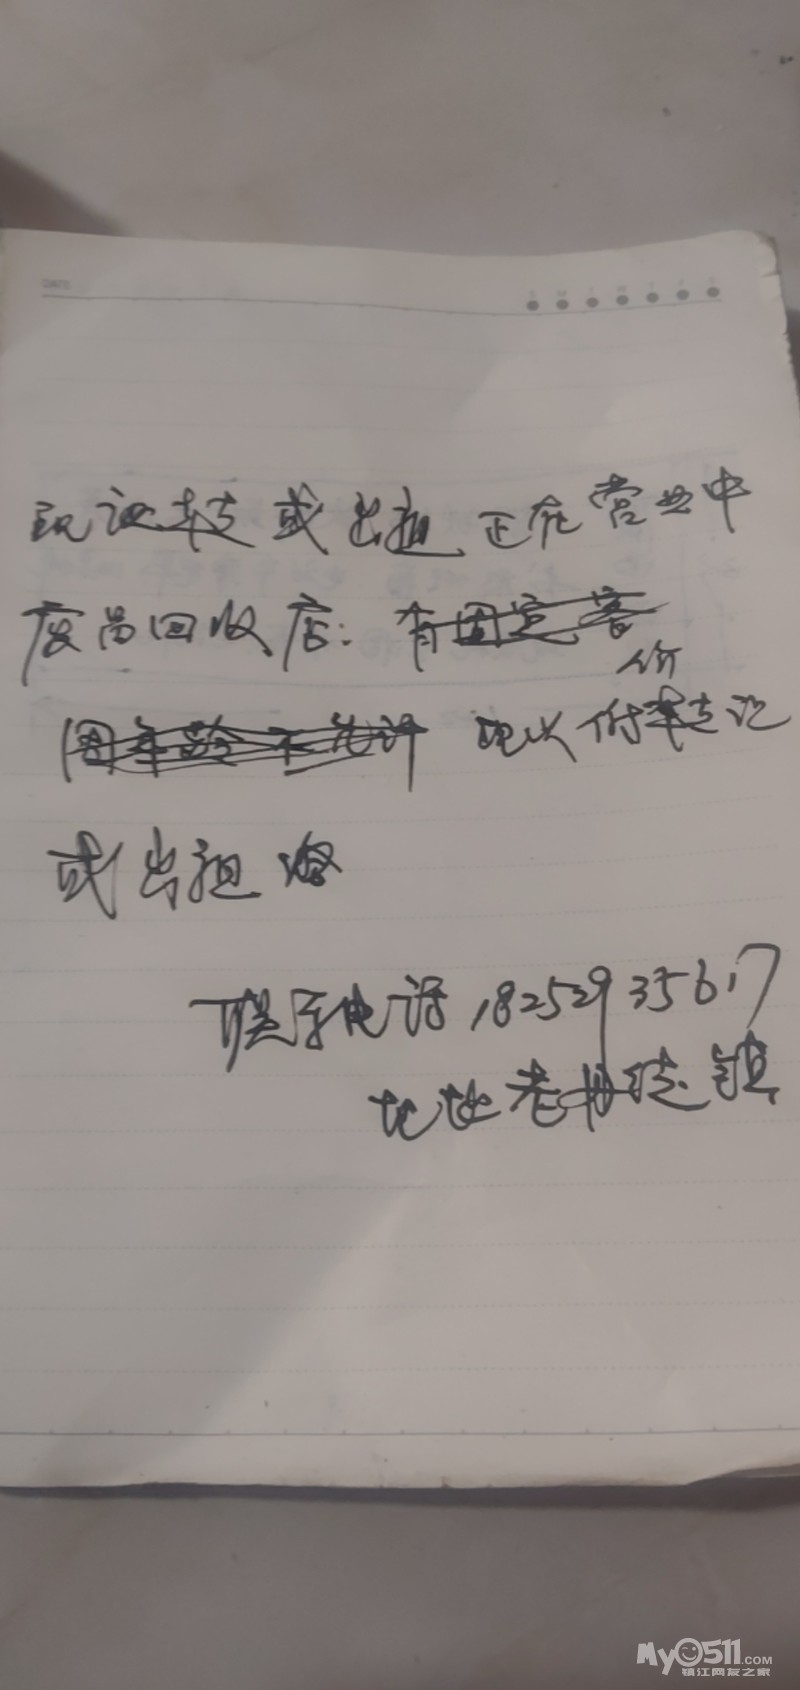 DATE S M T W T F S
现让转或出租正在营业中
废品回收店:有固定客
价
因年龄不允许 现以付转让
或出租
联系电话18252935617
地址老丹徒镇
My0511.COM
镇江网友之家